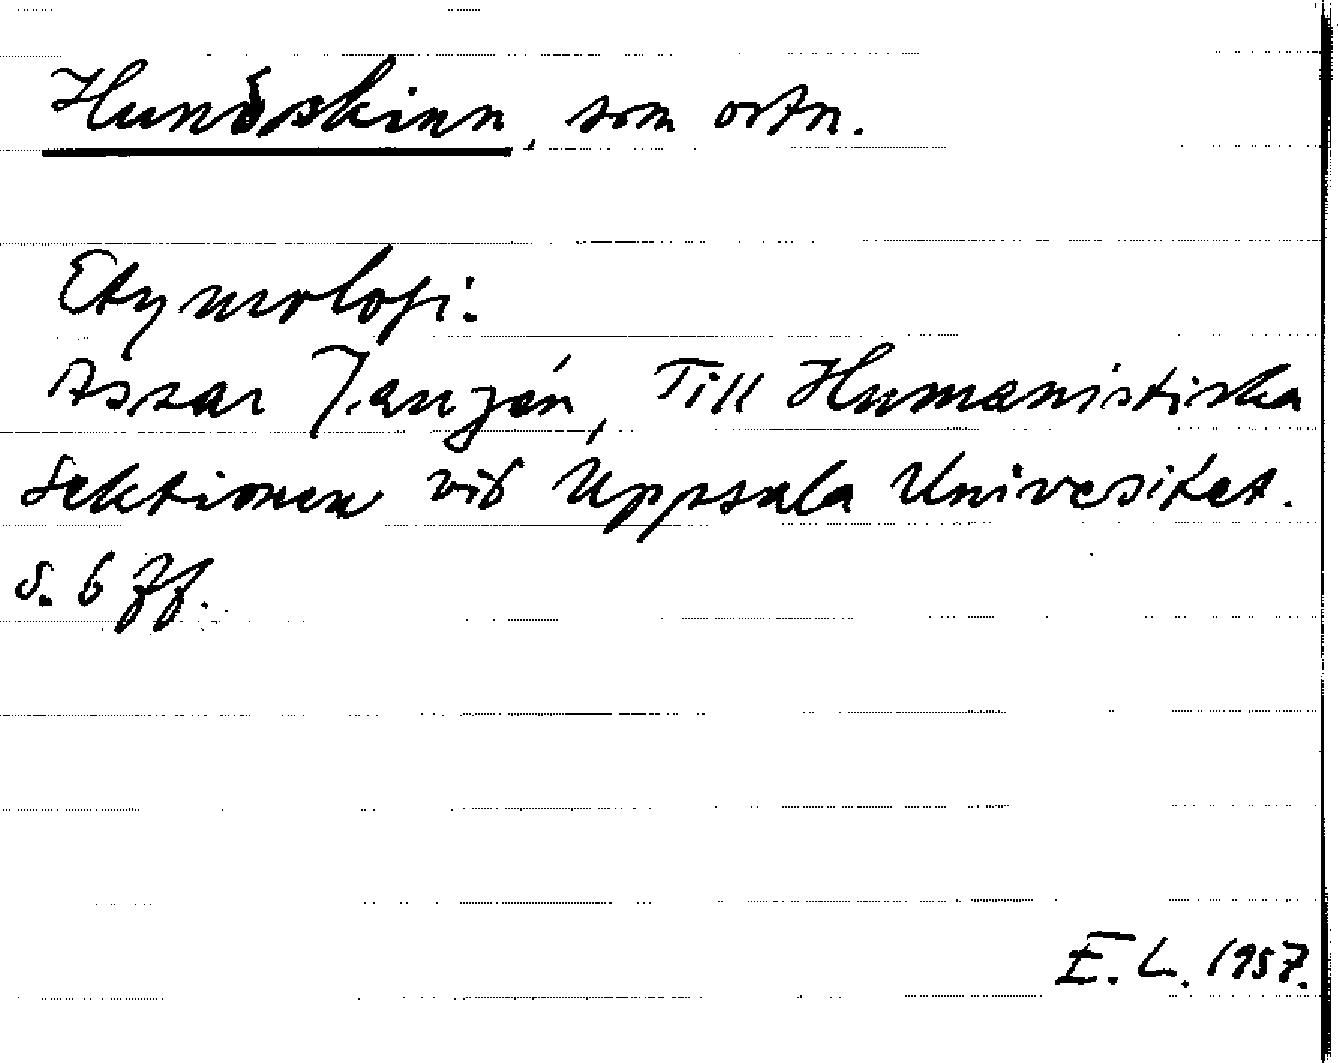 Hundskinn, som ortn.
Etymologi:
Assar Janzén, Till Humanistiska
Sektionen vid Uppsala Univesitet.
S. 6 ff.
E. L. 1957.